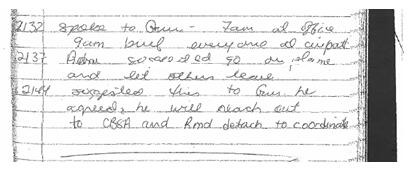 2132 spoke to Gurv - 7am at office
9am brief everyone at airport
2137 Adam suggested go on alone
and let others leave
2144 suggested this to Gurv he
agreed, he will reach out
to CBSA and Rmd detach to coordinate